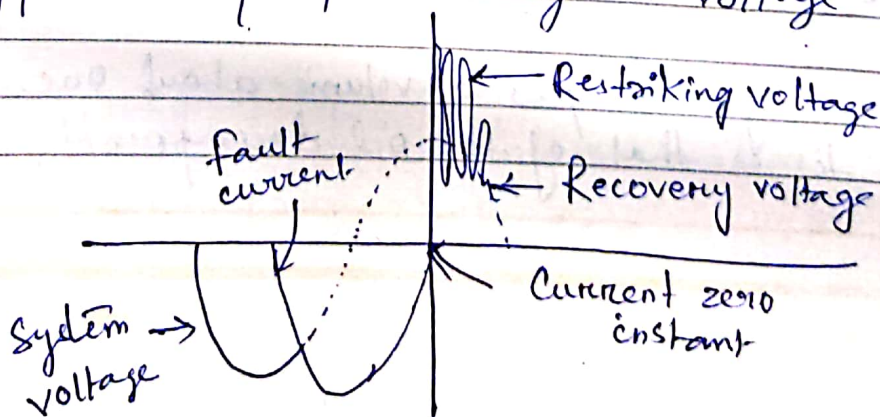 voltage
Restriking voltage
fault
current
Recovery voltage
Current zero
instant
System
voltage